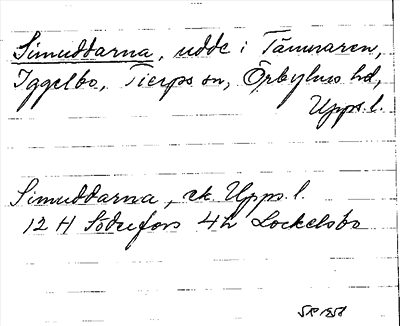 Simuddarna, udde i Tämnaren,
Iggelbo, Tierps sn, Örbyhus hd,
Upps. l.
Simuddarna, ek. Upps. l.
12 H Söderfors 4h Lockelsbo